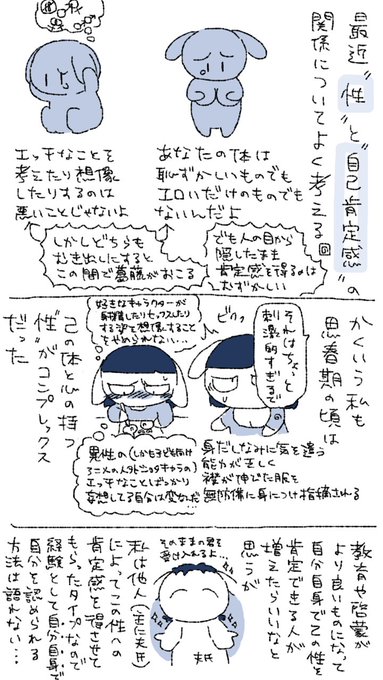 最近“性”と“自己肯定感”の
関係についてよく考える回
あなたの体は
恥ずかしいものでも
エロいだけのものでも
ないんだよ
エッチなことを
考えたり想像
したりするのは
悪いことじゃないよ
でも人の目から
隠したまま
肯定感を得るのは
むずかしい
しかしどちらも
むき出しにすると
この間で葛藤がおこる
かくいう私も
思春期の頃は
己の体と心の持つ
“性”がコンプレックス
だった
それはちょっと
刺激的すぎるで
ビクッ
身だしなみに気を遣う
能力が乏しく
襟が伸びた服を
無防備に身につけ指摘される
好きなキャラクターが
したりセックスしたり
する姿を想像すること
をやめられない…
異性の(しかも子ども向け
アニメの人外ドニョタキャラの)
エッチなことばっかり
妄想してる自分は変なんだ…
教育や啓蒙が
より良いものになって
自分自身で己の性を
肯定できる人が
増えたらいいなと
思うが
そのままの君を
受け入れるよ…
夫氏
私は他人(主に夫氏)
によってこの性への
肯定感を得させて
もらったタイプなので
経験として自分自身で
自分を認められる
方法は語れない…